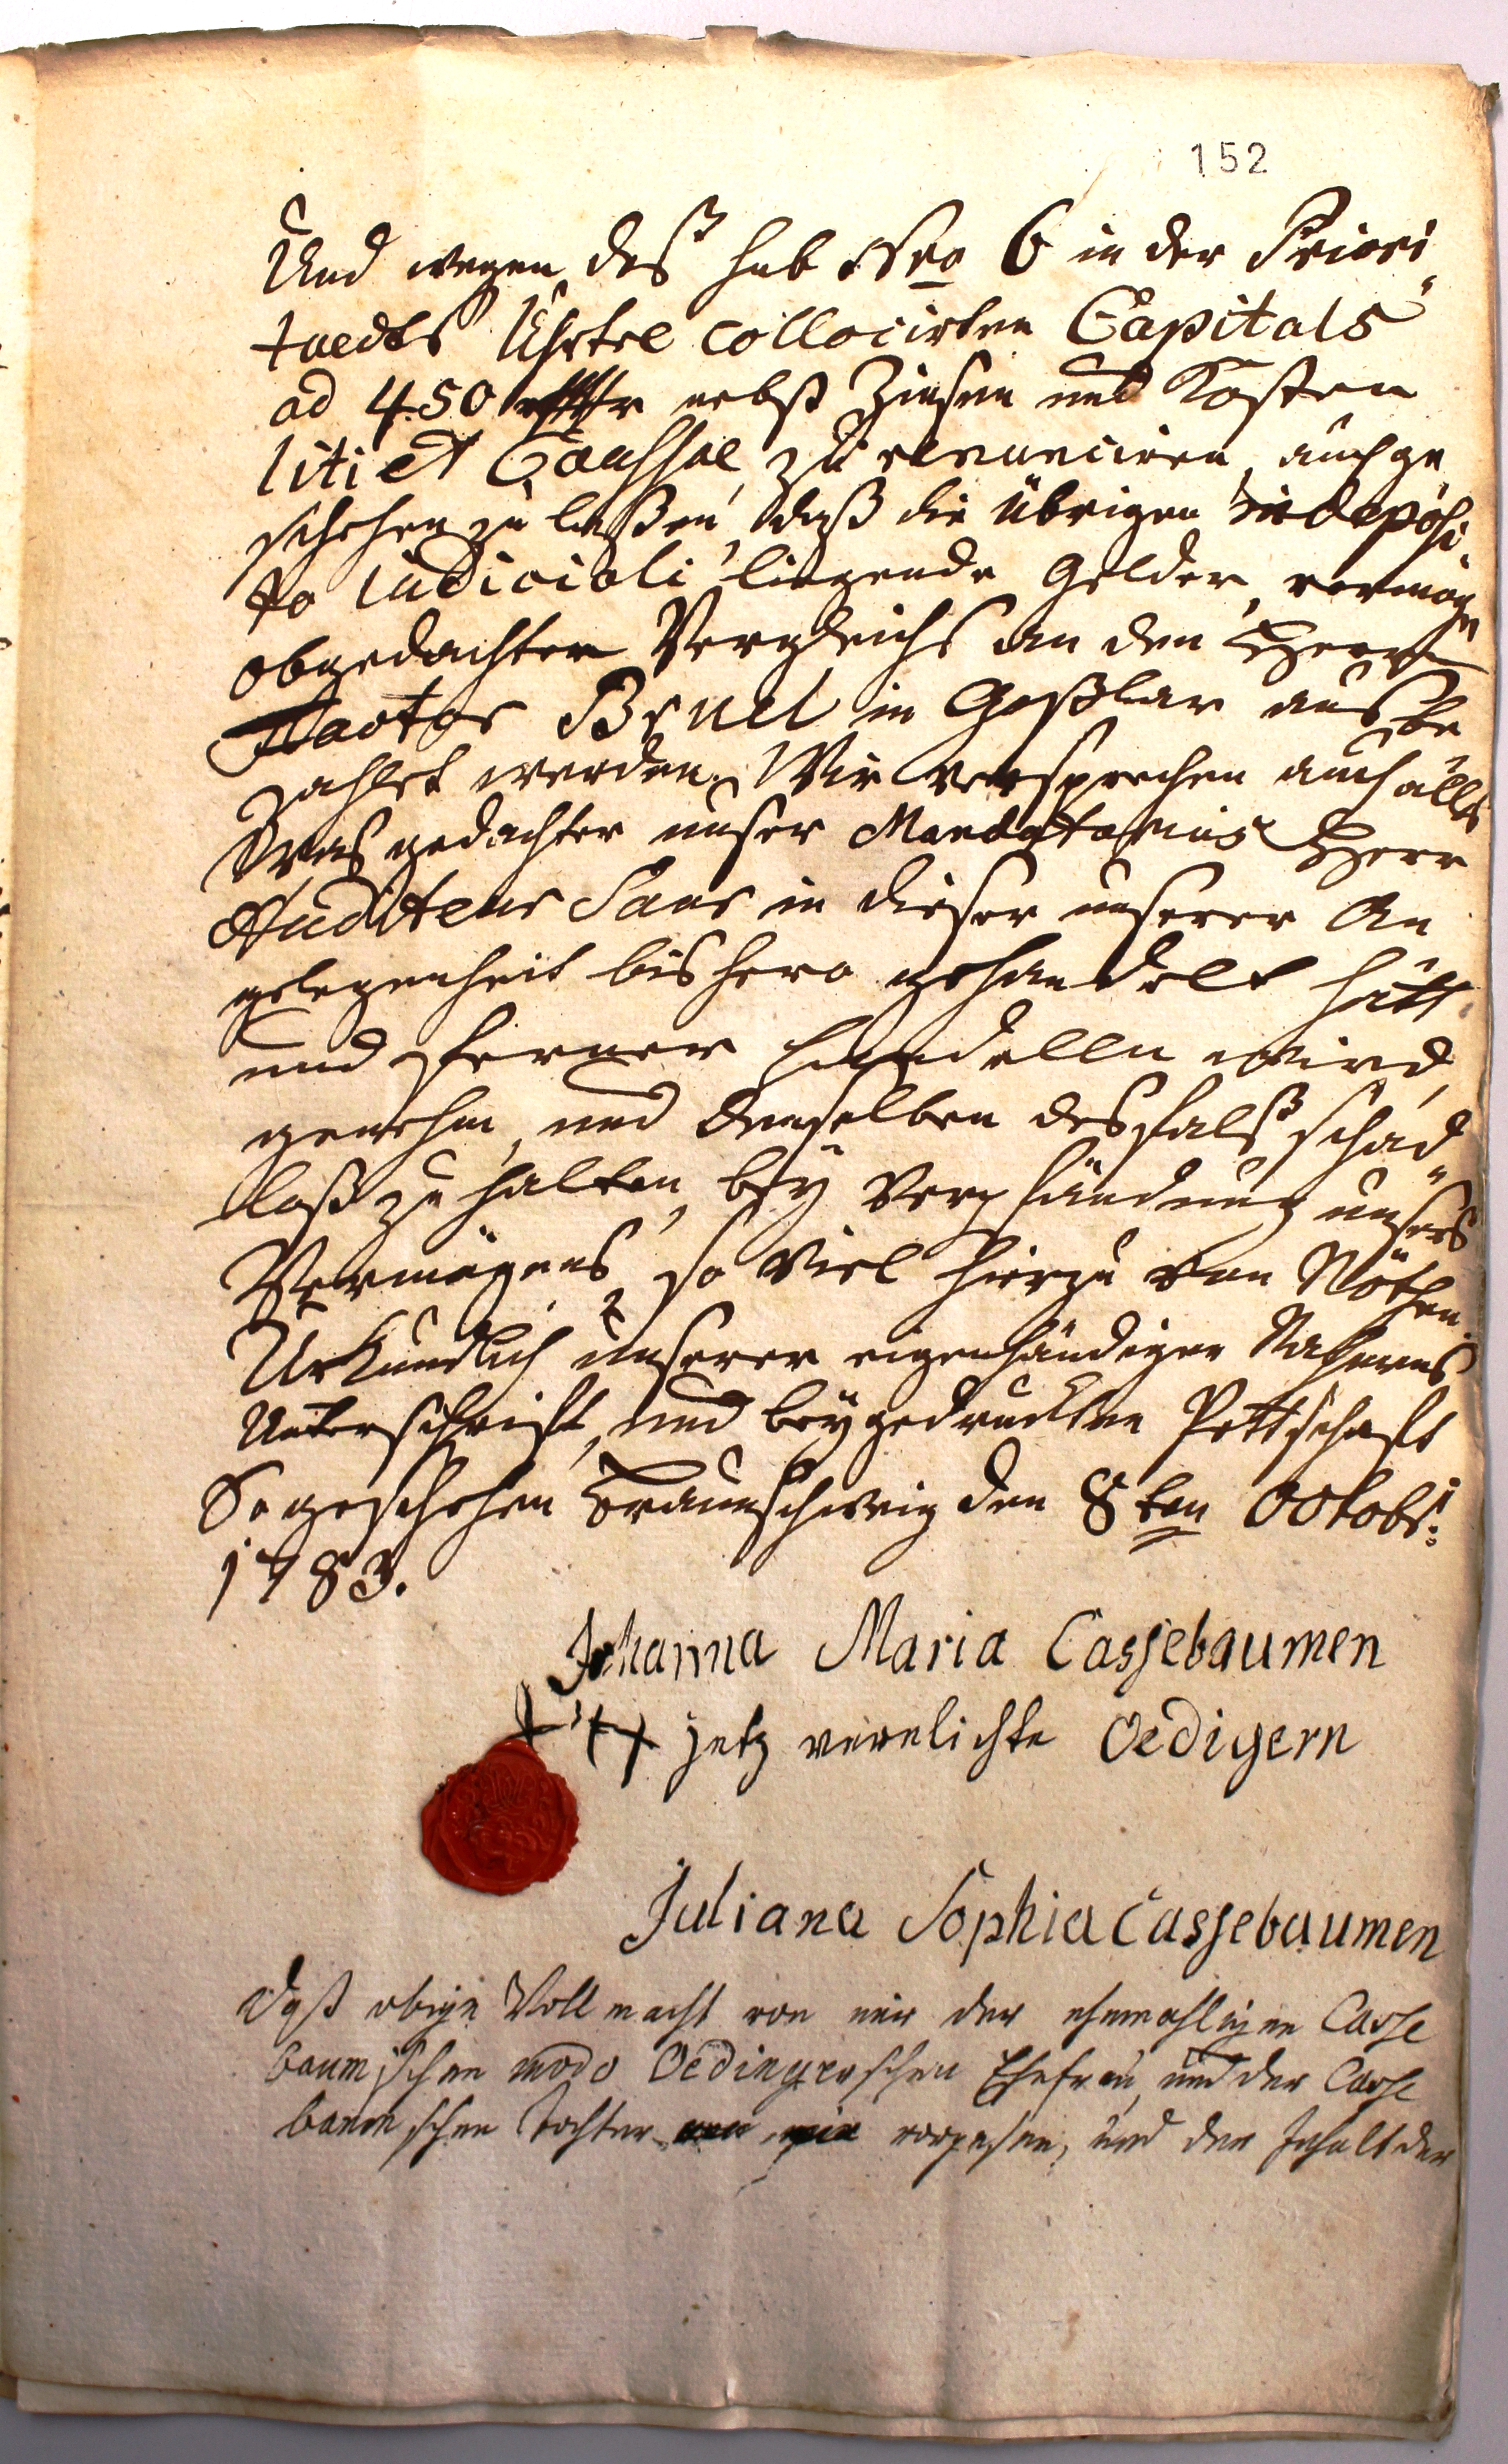 152
Und wegen des sub Nro 6 in der Priori
taedts Uhrtel collocirten Capitals
ad 450 rthlr nebst Zinsen und Kosten
liti et Caussae, zu renunciren, auch ge
schehen zu laßen, daß die übrigen in deposi
to Iudiciali liegende Gelder, vermöge
obgedachten Vergleichs an den Herrn
Factor Bruel in Goßlar ausbe
zahlet werden. Wir versprechen auch alles
Was gedachter unser Mandatarius Herr
Auditeur Saur in dieser unserer An
gelegenheit bishero gehandelt hatt
und ferner handelln wird,
genehm, und denselben desfalß schad
loß zu halten, bey Verpfändung unsers
Vermögens, so Viel hierzu von Nöthen.
Urkundlich unserer eigenhändigen Nahmens
Unterschrift, und beygedruckten Pettschaft
So geschehen Braunschweig den 8ten Octobr:
1783.
Johanna Maria Cassebaumen
+++ jetz verelichte Oedigern
Juliana Sophia Cassebaumen
Daß obige Vollmacht von mir der ehemahligen Casse
baumschen modo Oedingerschen Ehefrau, und der Casse
baumschen Tochter vorgelesen, und der Inhalt der